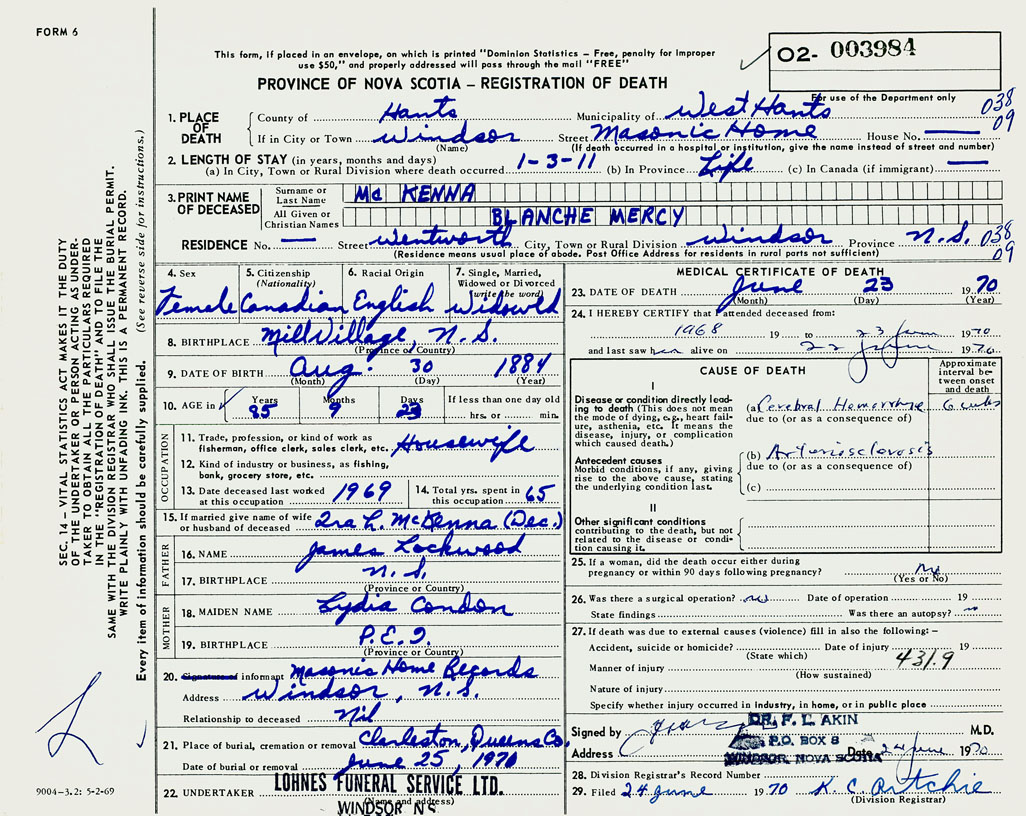 FORM 6
This form, if placed in an envelope, on which is printed "Dominion Statistics – Free, penalty for improper
use $50," and properly addressed will pass through the mail "FREE"
O2- 003984
PROVINCE OF NOVA SCOTIA – REGISTRATION OF DEATH
For use of the Department only
1. PLACE OF DEATH
County of Hants Municipality of West Hants 038
If in City or Town Windsor Street Masonic Home House No. — 09
(Name) (If death occurred in a hospital or institution, give the name instead of street and number)
2. LENGTH OF STAY (in years, months and days)
(a) In City, Town or Rural Division where death occurred 1-3-11 (b) In Province Life (c) In Canada (if immigrant) —
3. PRINT NAME OF DECEASED
Surname or Last Name Mc KENNA
All Given or Christian Names BLANCHE MERCY
RESIDENCE No. — Street Wentworth City, Town or Rural Division Windsor Province N.S. 038
(Residence means usual place of abode. Post Office Address for residents in rural parts not sufficient) 09
4. Sex 5. Citizenship (Nationality) 6. Racial Origin 7. Single, Married, Widowed or Divorced (write the word)
Female Canadian English Widowed
8. BIRTHPLACE Mill Village, N.S.
(Province or Country)
9. DATE OF BIRTH Aug. 30 1884
(Month) (Day) (Year)
10. AGE in Years Months Days If less than one day old
85 9 23 hrs. or min.
OCCUPATION
11. Trade, profession, or kind of work as
fisherman, office clerk, sales clerk, etc. Housewife
12. Kind of industry or business, as fishing,
bank, grocery store, etc.
13. Date deceased last worked at this occupation 1969 14. Total yrs. spent in this occupation 65
15. If married give name of wife or husband of deceased Ira L. McKenna (Dec.)
FATHER
16. NAME James Lockwood
17. BIRTHPLACE N.S.
(Province or Country)
MOTHER
18. MAIDEN NAME Lydia Condon
19. BIRTHPLACE P.E.I.
(Province or Country)
20. Signature of informant Masonic Home Records
Address Windsor, N.S.
Relationship to deceased Nil
21. Place of burial, cremation or removal Charleston, Queens Co.
Date of burial or removal June 25, 1970
22. UNDERTAKER LOHNES FUNERAL SERVICE LTD.
(Name and address)
WINDSOR N S
MEDICAL CERTIFICATE OF DEATH
23. DATE OF DEATH June 23 1970
(Month) (Day) (Year)
24. I HEREBY CERTIFY that I attended deceased from:
1968 19 to 23 June 1970
and last saw her alive on 22 June 1970
CAUSE OF DEATH
Approximate interval between onset and death
I
Disease or condition directly leading to death (This does not mean the mode of dying, e.g., heart failure, asthenia, etc. It means the disease, injury, or complication which caused death.)
(a) Cerebral Hemorrhage 6 wks
due to (or as a consequence of)
Antecedent causes
Morbid conditions, if any, giving rise to the above cause, stating the underlying condition last.
(b) Arteriosclerosis
due to (or as a consequence of)
(c)
II
Other significant conditions
contributing to the death, but not related to the disease or condition causing it.
25. If a woman, did the death occur either during
pregnancy or within 90 days following pregnancy? No
(Yes or No)
26. Was there a surgical operation? no Date of operation 19
State findings Was there an autopsy?
27. If death was due to external causes (violence) fill in also the following: –
Accident, suicide or homicide? Date of injury 19
(State which) 431.9
Manner of injury
(How sustained)
Nature of injury
Specify whether injury occurred in industry, in home, or in public place
Signed by DR. F. L. AKIN M.D.
P.O. BOX 8
Address WINDSOR, NOVA SCOTIA Date 24 June 1970
28. Division Registrar's Record Number
29. Filed 24 June 1970 K. C. Ritchie
(Division Registrar)
SEC. 14 – VITAL STATISTICS ACT MAKES IT THE DUTY
OF THE UNDERTAKER OR PERSON ACTING AS UNDER-
TAKER TO OBTAIN ALL THE PARTICULARS REQUIRED
IN THE "REGISTRATION OF DEATH" AND TO FILE THE
SAME WITH THE DIVISION REGISTRAR WHO SHALL ISSUE THE BURIAL PERMIT.
WRITE PLAINLY WITH UNFADING INK. THIS IS A PERMANENT RECORD.
Every item of information should be carefully supplied. (See reverse side for instructions.)
9004-3.2: 5-2-69